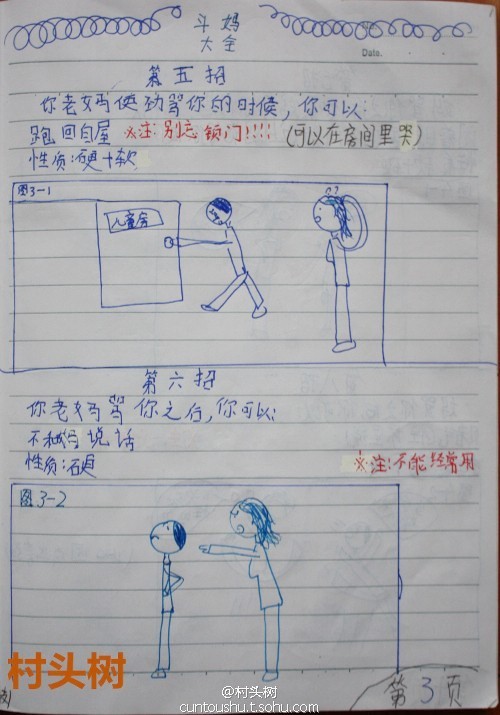 斗妈
大全
Date.
第五招
你老妈使劲骂你的时候，你可以：
跑回自屋 ※注：别忘锁门!!!! (可以在房间里哭)
性质：硬+软
图3-1
儿童房
第六招
你老妈骂你之后，你可以：
不和妈说话
性质：硬
※注：不能经常用
图3-2
村头树
第3页
@村头树
cuntoushu.t.sohu.com